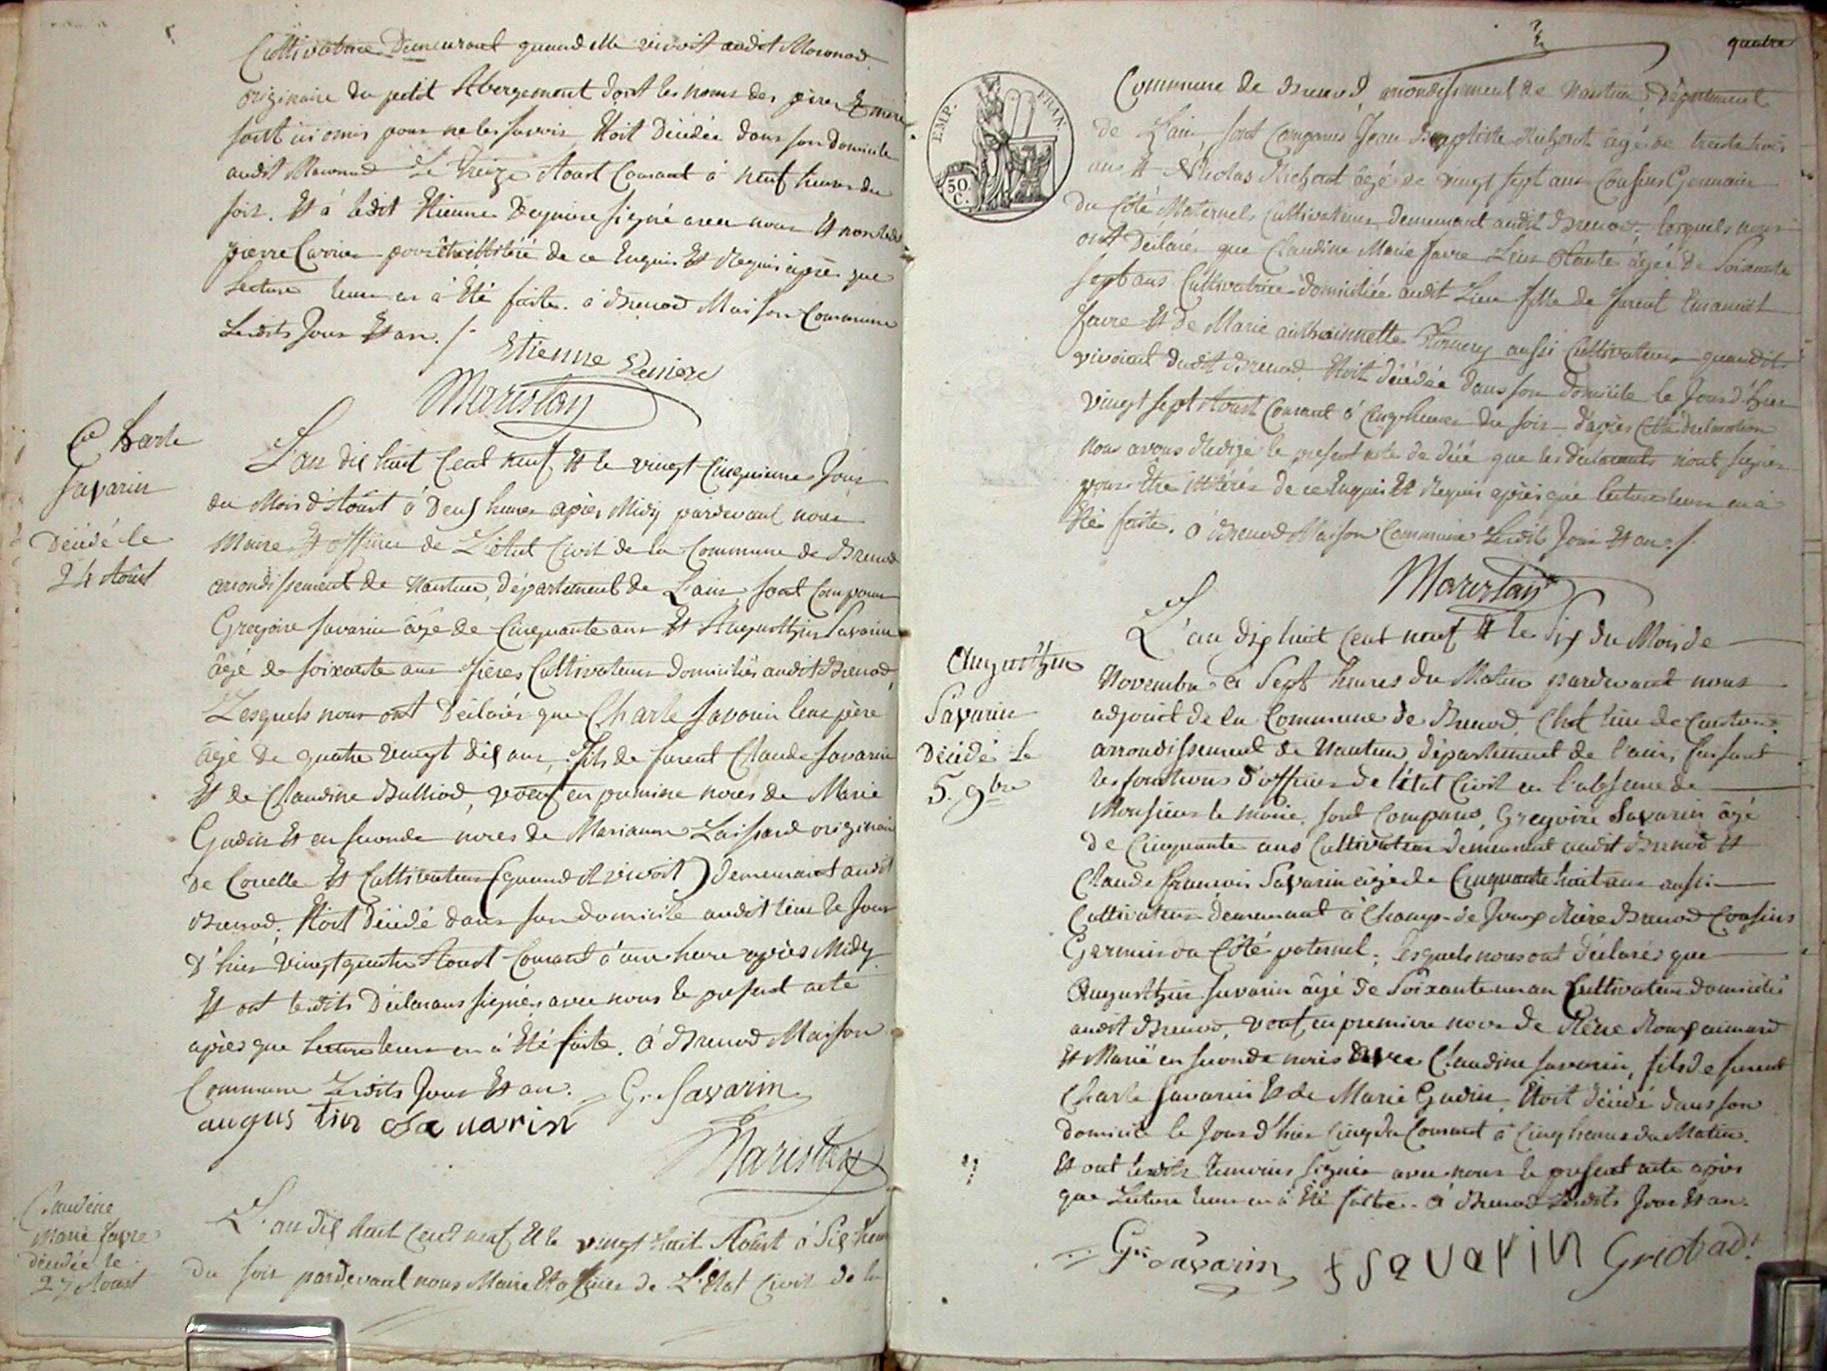 Cultivatrice Demeurant quand elle vivoit audit Macconod
originaire du petit Abergement dont les noms des pères Et mere
sont ici omis pour ne les savoir Etoit Décédée dans son Domicile
audit Macconod Le treize Aoust Courant à neuf heures du
soir. Et à ledit Etienne signé avec nous Et non ledit
pierre Carrier pour être illitéré de ce Enquis Et Requis après que
Lecture leur en à Eté faite. à Brenod Maison Commune
Lesdits Jour Et an ./.
Etienne
Maristan
Ce Charle
Savarin
Décédé le
24 Aoust
L'an dix huit Cent neuf Et le vingt Cinquieme Jour
du Mois d'Aoust à Deux heures après Midy pardevant nous
Maire Et officier de L'état Civil de la Commune de Brenod
arrondissement de Nantua, département de L'ain, sont Comparus
Gregoire Savarin âgé de Cinquante ans Et Augusthin Savarin
âgé de soixante ans frères Cultivateurs domiciliés audit Brenod,
Lesquels nous ont Déclarés que Charle Savarin leur père
âgé de quatre vingt dix ans, fils de furent Claude Savarin
Et de Claudine Bulliod, veuf en premiere noces de Marie
Gudin Et en seconde noces de Marianne Laissard originaire
de Couelle Et Cultivateur (quand il vivoit) demeurant audit
Brenod. Etoit Décédé dans son domicile audit lieu le Jour
d'hier vingt quatre Aoust Courant à une heure après Midy
Et ont lesdits Déclarans signés avec nous le present acte
après que Lecture leur en à Eté faite. à Brenod Maison
Commune Lesdits Jour Et an. G. Savarin
augus tin Savarin
Maristan
Claudine
Marie favre
décédée le
27 Aoust
L'an dix huit Cent neuf Et le vingt huit Aoust à Six heures
du soir pardevant nous Maire Et officier de L'Etat Civil de la
quatre
EMP. FRAN.
50 C.
Commune de Brenod arrondissement de Nantua, Département
de L'ain, sont Comparus Jean Baptiste Richerot âgé de trente trois
ans Et Nicolas Richerot âgé de vingt sept ans Cousins Germain
du Côté Maternel, Cultivateurs Demeurant audit Brenod, lesquels nous
ont Déclarés que Claudine Marie favre Leur Tante âgée de Soixante
sept ans Cultivatrice domiciliée audit Lieu fille de furent Emanuel
favre Et de Marie anthoinnette aussi Cultivateurs quand ils
vivoient dudit Brenod. Etoit décédée dans son domicile le Jour d'hier
vingt sept Aoust Courant à Cinq heures du soir d'après Cette declaration
nous avons Redigé le present acte de décè que les déclarants n'ont signés
pour être illitérés de ce Enquis Et Requis après que lecture leur en à
Eté faite. à Brenod Maison Commune Lesdits Jour Et an ./.
Maristan
Augusthin
Savarin
Décédé Le
5. 9bre
L'an dix huit Cent neuf Et le Six du Mois de
Novembre à Sept heures du Matin pardevant nous
adjoint de la Commune de Brenod, Chef lieu de Canton,
arrondissement de Nantua, département de l'ain, faisant
les fonctions d'officier de l'état Civil en l'absence de
Monsieur le maire, sont Comparus, Gregoire Savarin âgé
de Cinquante ans Cultivateur demeurant audit Brenod Et
Claude francois Savarin âgé de Cinquante huit ans aussi
Cultivateur demeurant à Champ-de Joux Riere Brenod Cousins
Germins du Côté paternel; lesquels nous ont déclarés que
Augusthin Savarin âgé de Soixante un an Cultivateur domicilié
audit Brenod, veuf en premiere noces de
Et Marié en seconde noces avec Claudine Savarin, fils de furent
Charle Savarin Et de Marie Gudin, Etoit décédé dans son
domicile le Jour d'hier Cinq du Courant à Cinq heures du Matin.
Et ont lesdits temoins signés avec nous le present acte après
que Lecture leur en à Eté faitte. à Brenod Lesdits Jour Et an.
G. Savarin f savarin Griobad